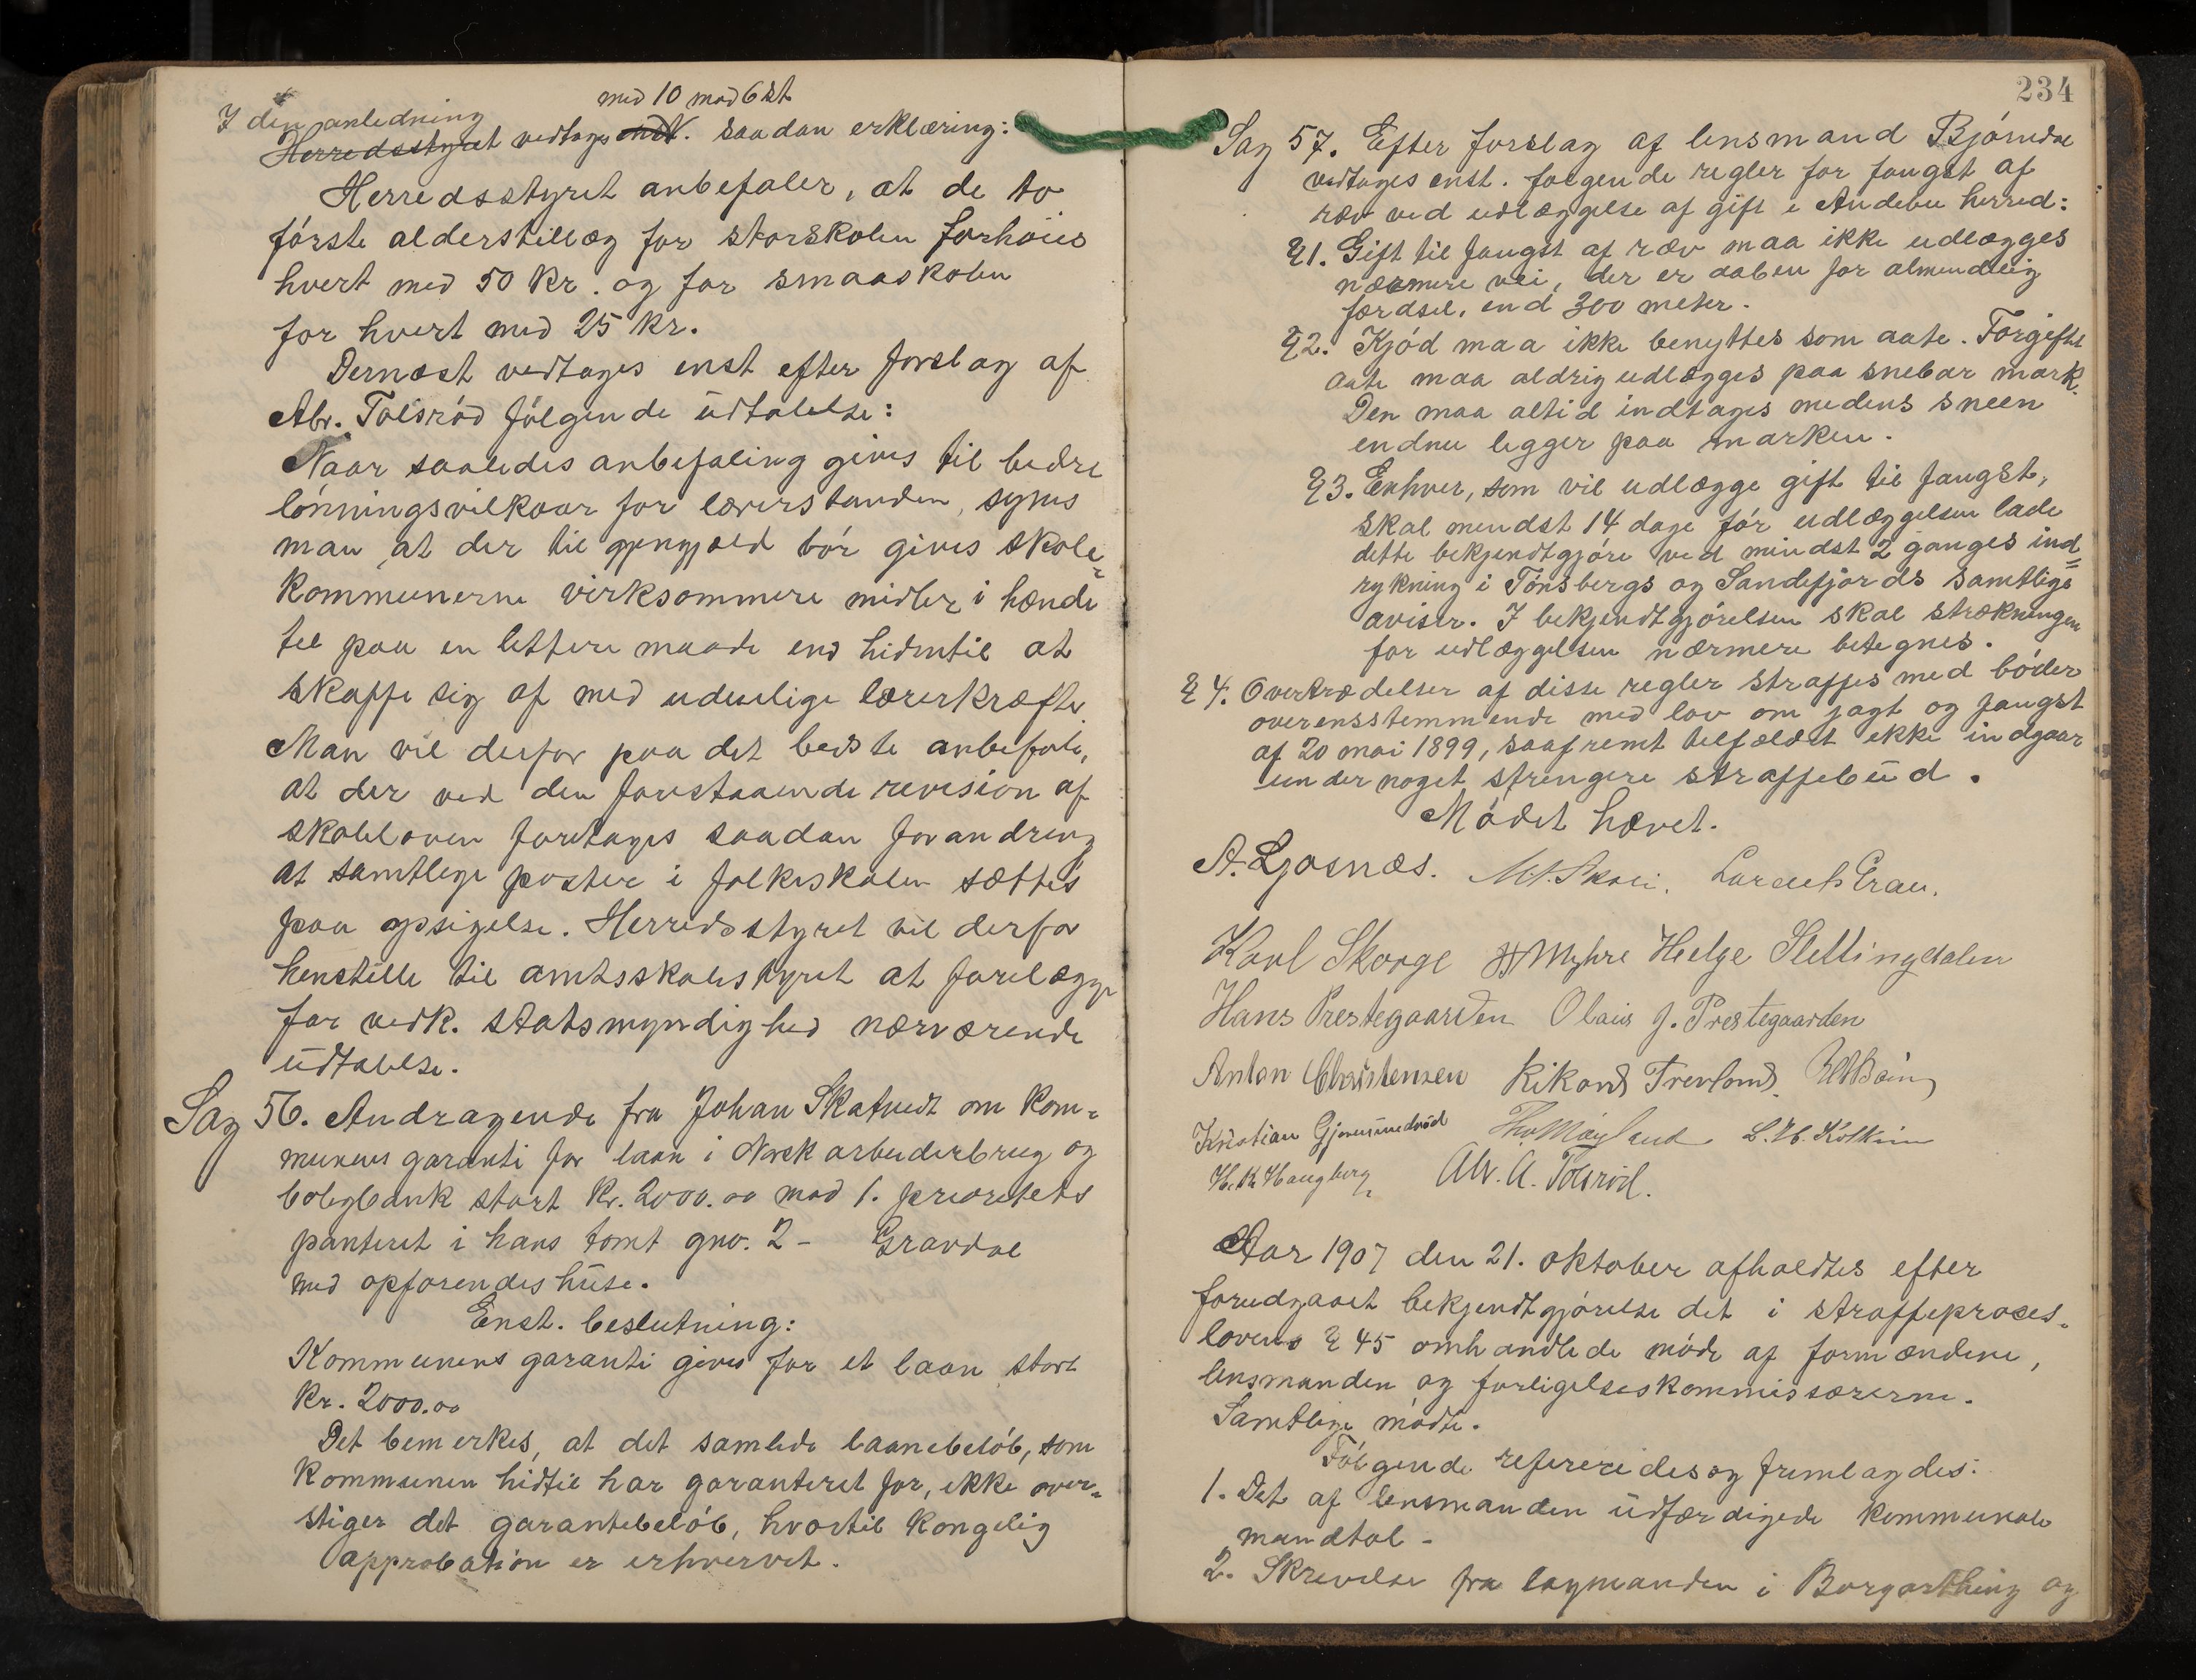 I den anledning med 10 mod 6 st.
Herredsstyret vedtages enst. saadan erklæring:
Herredsstyret anbefaler, at de to
første alderstillæg for storskolen forhøies
hvert med 50 kr. og for smaaskolen
for hvert med 25 kr.
Dernæst vedtages enst efter forslag af
Abr. Tolsrød følgende udtalelse:
Naar saaledes anbefaling gives til bedre
lønningsvilkaar for lærerstanden, synes
man, at der til gjengjæld bør gives skole-
kommunerne virksommere midler i hænde
til paa en lettere maade end hidentil at
skaffe sig af med uduelige lærerkræfter.
Man vil derfor paa det bedste anbefale,
at der ved den forestaaende revision af
skoleloven foretages saadan forandring
at samtlige poster i folkeskolen sættes
paa opsigelse. Herredsstyret vil derfor
henstille til amtsskolestyret at forelægge
for vedk. statsmyndighed nærværende
udtalelse.
Sag 56. Andragende fra Johan Skatvedt om kom-
munens garanti for laan i Norsk arbeiderbrug og
boligbank stort kr. 2000.00 mod 1. prioritets
panteret i hans tomt gno. 2 - Gravdal
med opførendes huse.
Enst. beslutning:
Kommunens garanti gives for et laan stort
kr. 2000.00
Det bemerkes, at det samlede laanebeløb, som
kommunen hidtil har garanteret for, ikke over-
stiger det garantibeløb, hvortil kongelig
approbation er erhvervet.
234
Sag 57. Efter forslag af lensmand Bjørndal
vedtages enst. følgende regler for fangst af
ræv ved udlæggelse af gift i Andebu herred:
§1. Gift til fangst af ræv maa ikke udlægges
nærmere vei, der er aaben for almindelig
færdsel, end 300 meter.
§2. Kjød maa ikke benyttes som aate. Forgiftet
aate maa aldrig udlægges paa snebar mark.
Den maa altid indtages medens sneen
endnu ligger paa marken.
§3. Enhver, som vil udlægge gift til fangst,
skal mindst 14 dage før udlæggelsen lade
dette bekjendtgjøre ved mindst 2 ganges ind-
rykning i Tønsbergs og Sandefjords samtlige
aviser. I bekjendtgjørelsen skal strækningen
for udlæggelsen nærmere betegnes.
§4. Overtrædelser af disse regler straffes med bøder
overensstemmende med lov om jagt og fangst
af 20 mai 1899, saafremt tilfældet ikke indgaar
under noget strengere straffebud.
Mødet hævet.
A. Ljosnæs. M. A. Skoli. Lorents Gran.
Karl Skorge H Myhre Helge Slettingdalen
Hans Prestegaarden Olaus J. Prestegaarden
Anton Christensen Rikard Trevland
Kristian Gjermundrød L. H. Kolkinn
H. K. Haugberg Abr. A. Tolsrød.
Aar 1907 den 21. oktober afholdtes efter
forudgaaet bekjendtgjørelse det i straffeproces-
lovens § 45 omhandlede møde af formændene,
lensmanden og forligelseskommissærerne.
Samtlige mødte.
Følgende refereredes og fremlagdes:
1. Det af lensmanden udfærdigede kommunale
mandtal -
2. Skrivelse fra lagmanden i Borgarthing og